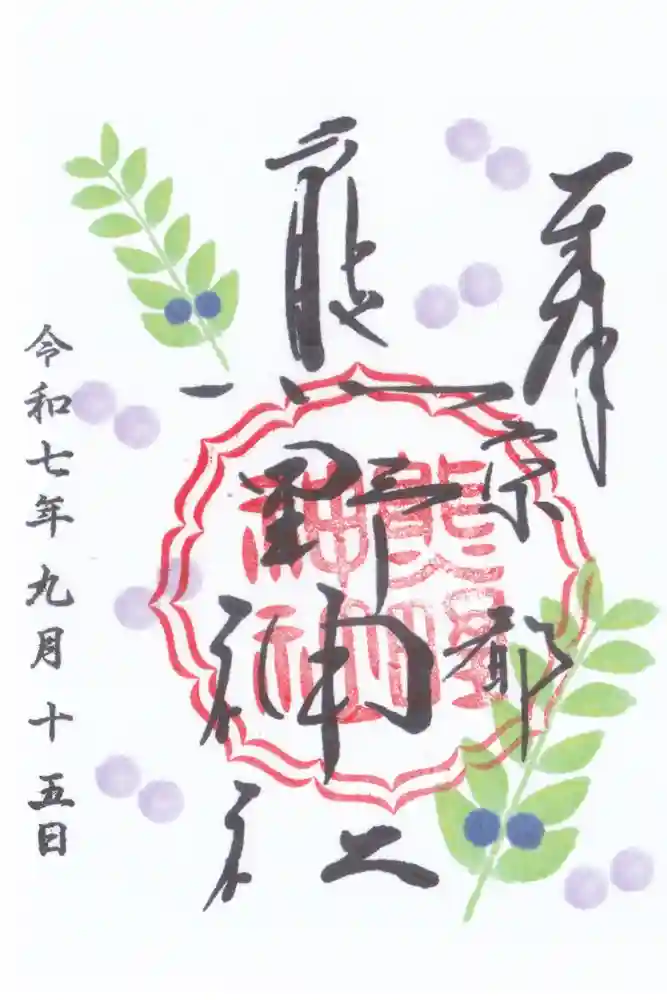 奉
京都
熊野神社
熊野
神社
令和七年九月十五日